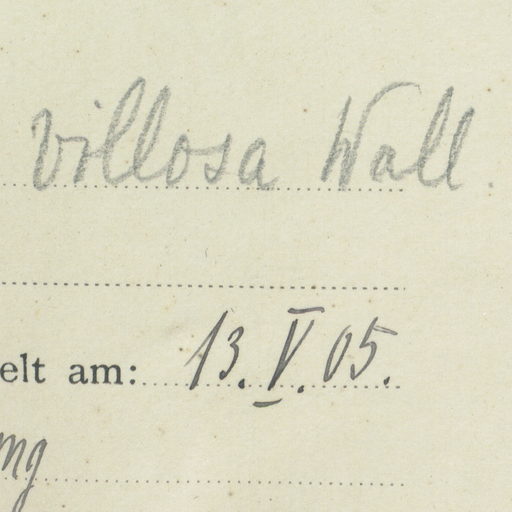 villosa Wall.
elt am: 13. V. 05.
mg